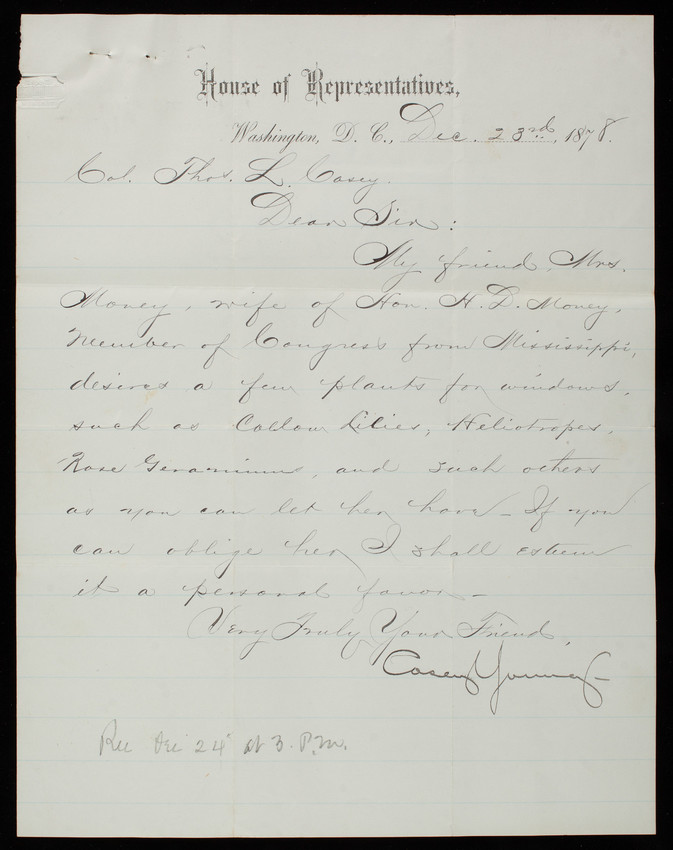 House of Representatives,
Washington, D. C., Dec. 23rd, 1878.
Col. Thos. L. Casey.
Dear Sir:
My friend, Mrs.
Money, wife of Hon. H. D. Money,
Member of Congress from Mississippi,
desires a few plants for windows,
such as Callow Lilies, Heliotropes,
Rose Geraniums, and such others
as you can let her have - If you
can oblige her, I shall esteem
it a personal favor -
Very Truly Your Friend,
Casey Young -
Rec Dec 24 at 3. P.M.